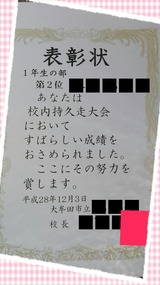 表彰状
1年生の部
第2位
あなたは
校内持久走大会
において
すばらしい成績を
おさめられました。
ここにその努力を
賞します。
平成28年12月3日
大牟田市立
校長